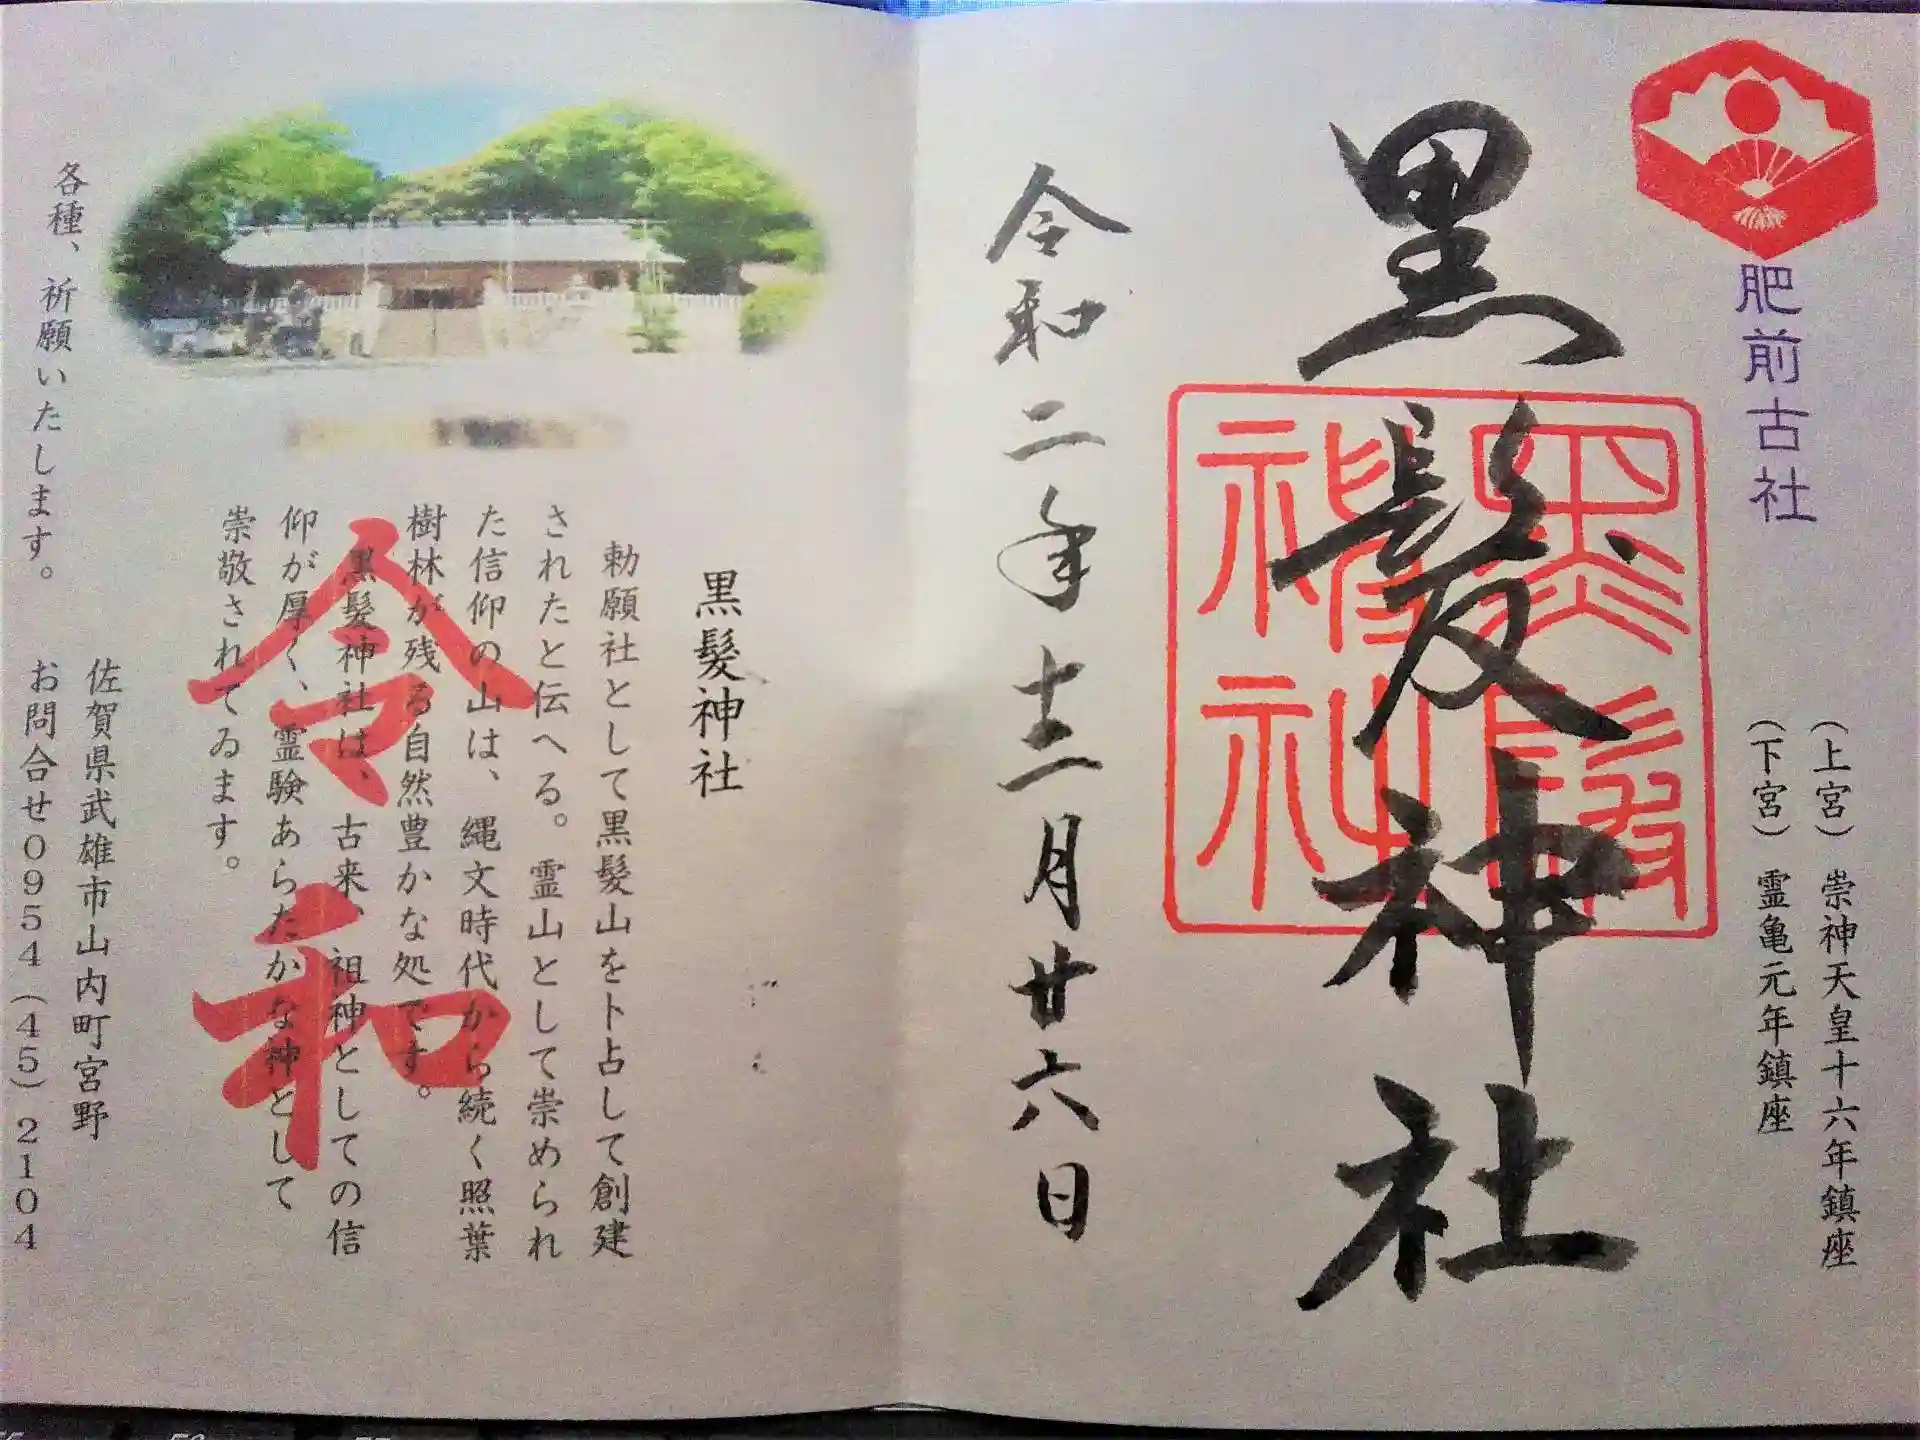 肥前古社
(上宮)崇神天皇十六年鎮座
(下宮)霊亀元年鎮座
黒髪神社
黒髪神社
令和二年十二月廿六日
黒髪神社
勅願社として黒髪山を卜占して創建
されたと伝へる。霊山として崇められ
た信仰の山は、縄文時代から続く照葉
樹林が残る自然豊かな処です。
黒髪神社は、古来、祖神としての信
仰が厚く、霊験あらたかな神として
崇敬されてゐます。
令和
各種、祈願いたします。
佐賀県武雄市山内町宮野
お問合せ0954(45)2104